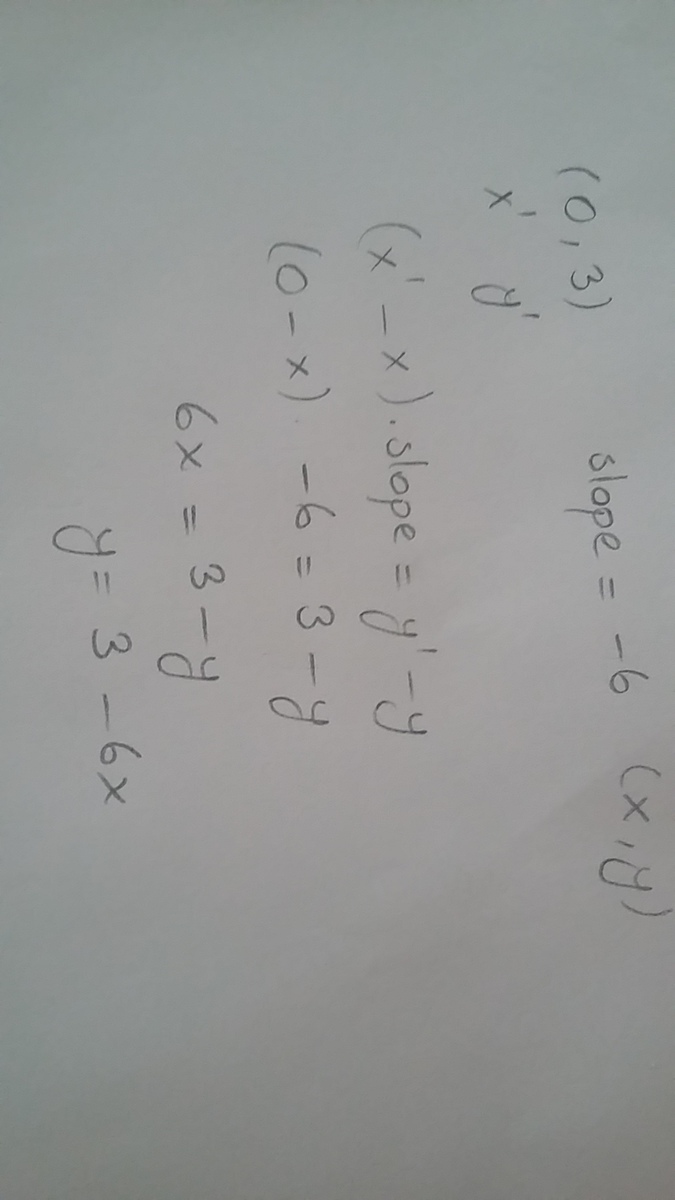 (0, 3) slope = -6 (x, y)
x' y'
(x' - x) . slope = y' - y
(0 - x) . -6 = 3 - y
6x = 3 - y
y = 3 - 6x